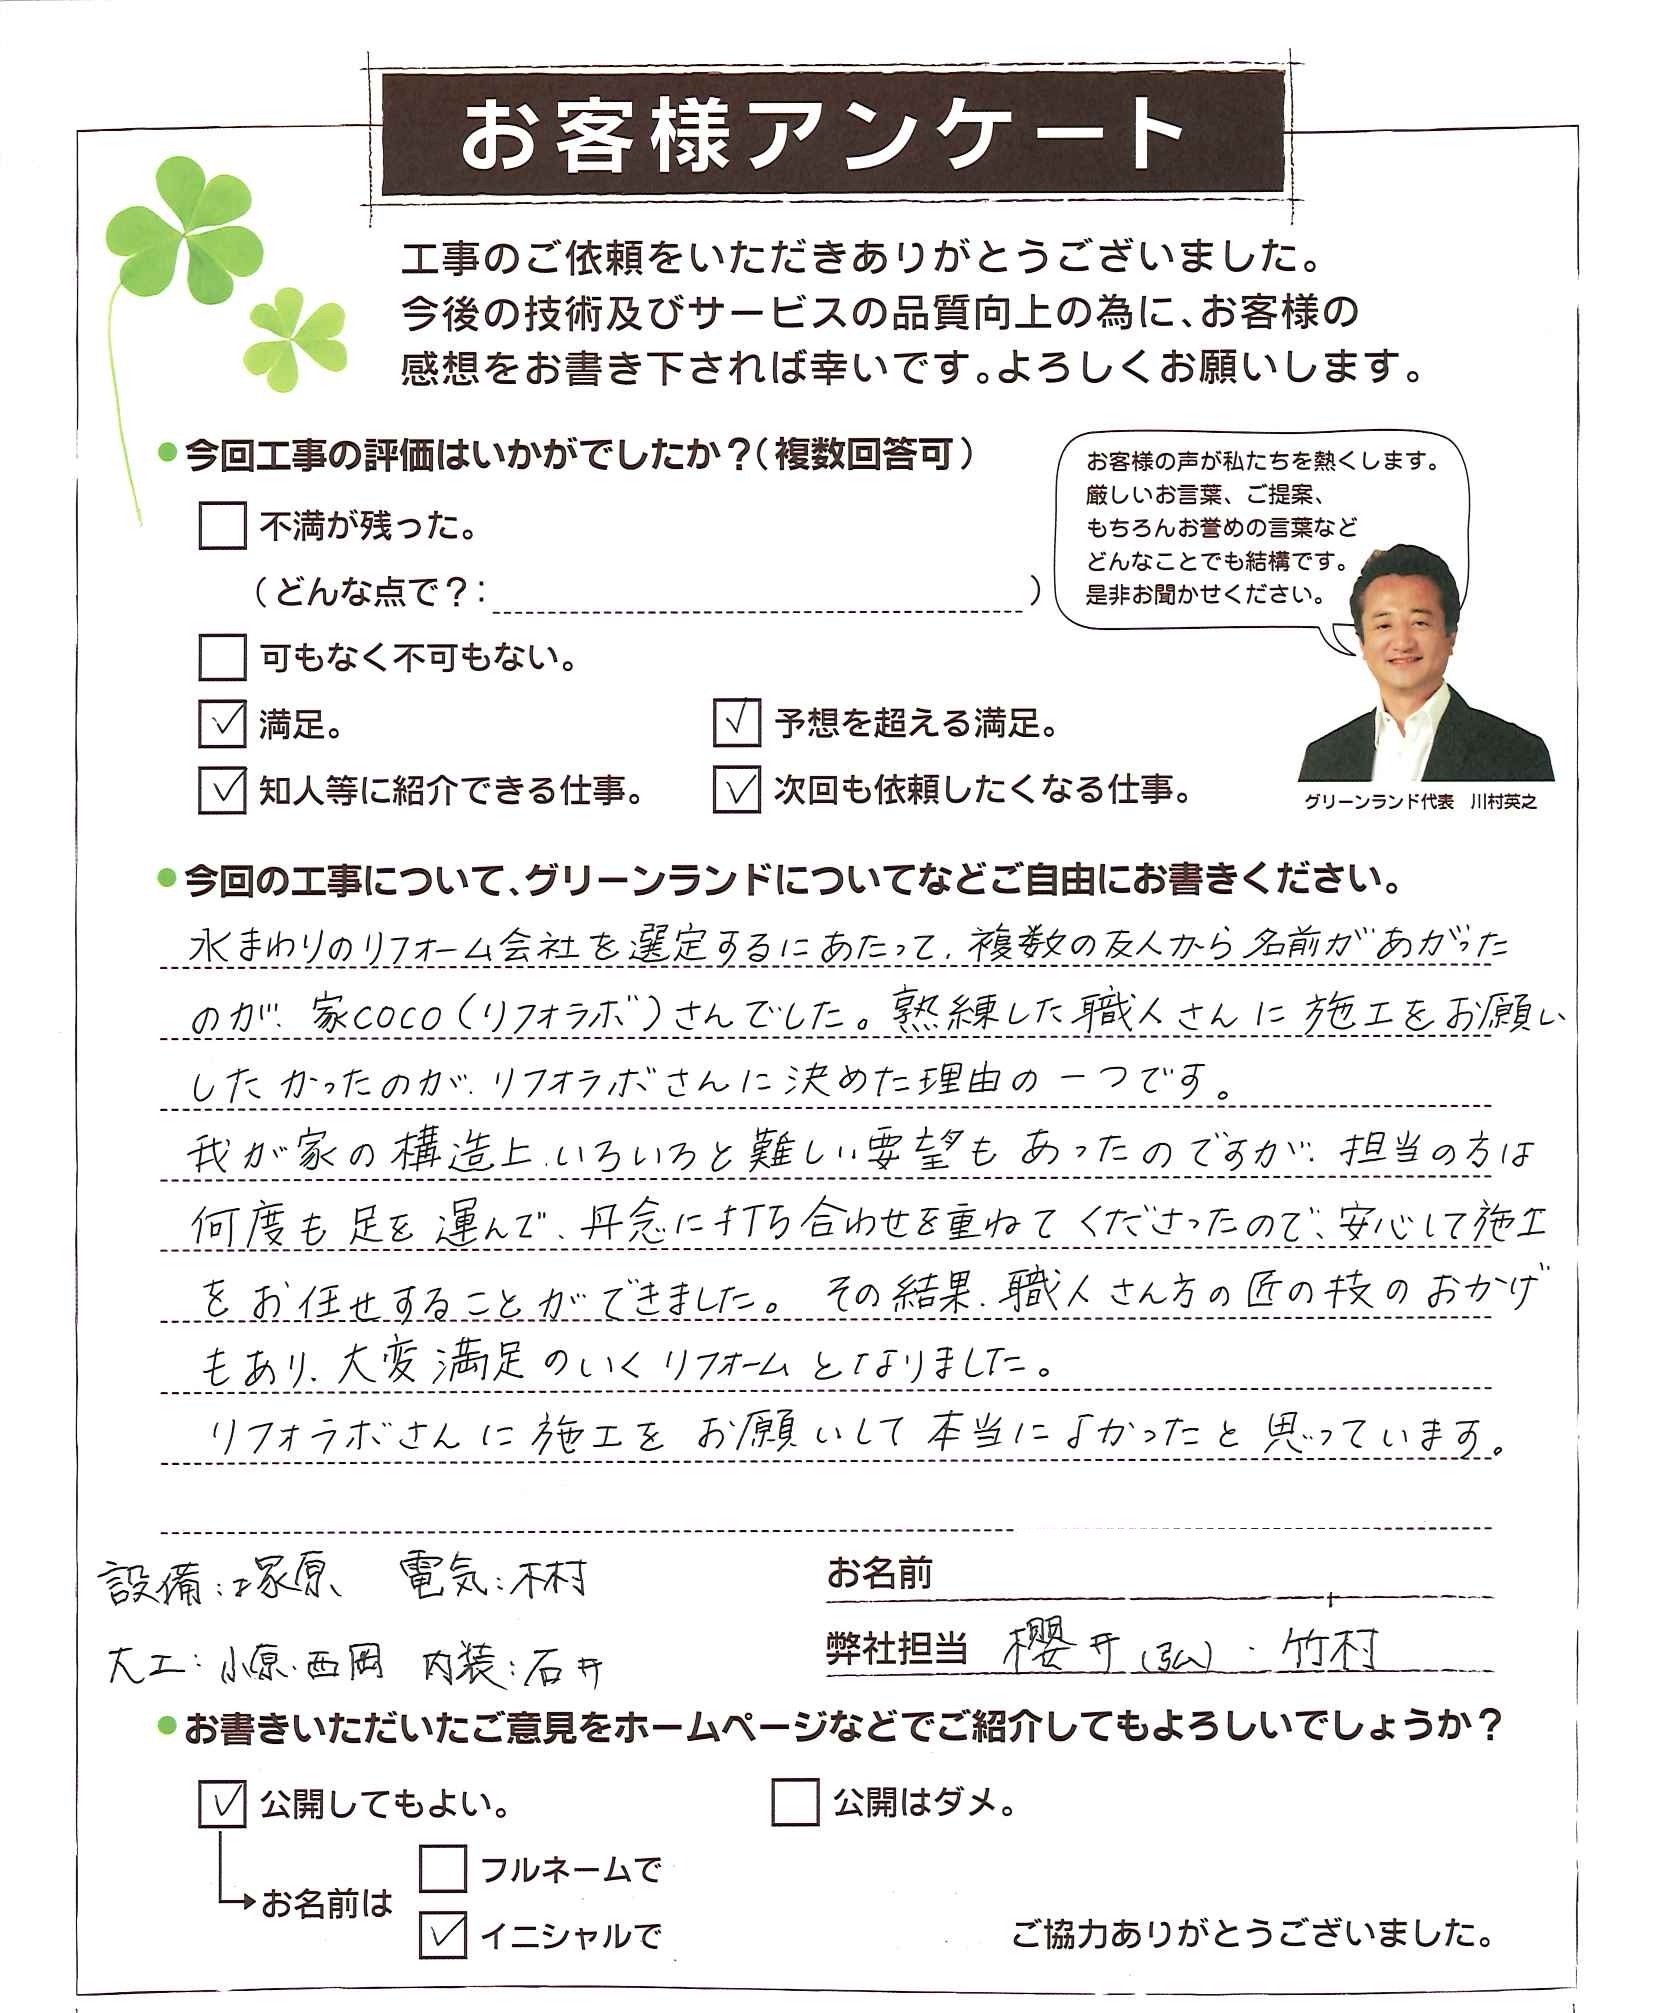 お客様アンケート
工事のご依頼をいただきありがとうございました。
今後の技術及びサービスの品質向上の為に、お客様の
感想をお書き下されば幸いです。よろしくお願いします。
●今回工事の評価はいかがでしたか？（複数回答可）
お客様の声が私たちを熱くします。
厳しいお言葉、ご提案、
もちろんお誉めの言葉など
どんなことでも結構です。
是非お聞かせください。
不満が残った。
（どんな点で？：　）
可もなく不可もない。
満足。
予想を超える満足。
知人等に紹介できる仕事。
次回も依頼したくなる仕事。
グリーンランド代表　川村英之
●今回の工事について、グリーンランドについてなどご自由にお書きください。
水まわりのリフォーム会社を選定するにあたって、複数の友人から名前があがった
のが、家COCO（リフォラボ）さんでした。熟練した職人さんに施工をお願い
したかったのが、リフォラボさんに決めた理由の一つです。
我が家の構造上、いろいろと難しい要望もあったのですが、担当の方は
何度も足を運んで、丹念に打ち合わせを重ねてくださったので、安心して施工
をお任せすることができました。その結果、職人さん方の匠の技のおかげ
もあり、大変満足のいくリフォームとなりました。
リフォラボさんに施工をお願いして本当によかったと思っています。
設備：塚原、電気：木村
お名前
大工：小原・西岡　内装：石井
弊社担当　櫻井（弘）・竹村
●お書きいただいたご意見をホームページなどでご紹介してもよろしいでしょうか？
公開してもよい。
公開はダメ。
お名前は
フルネームで
イニシャルで
ご協力ありがとうございました。